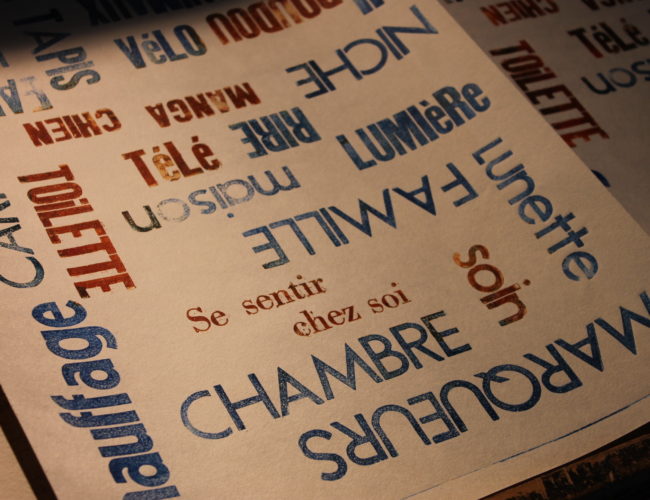 TAPIS
VéLO
DOUDOU
NICHE
CHIEN
MANGA
TéLé
RIRE
LUMIèRe
TOiLETTE
maison
FAMILLE
Lunette
Se sentir
chez soi
soin
CHAMBRE
MARQUEURS
hauffage
CHIEN
TéLé
TOiLETTE
maison